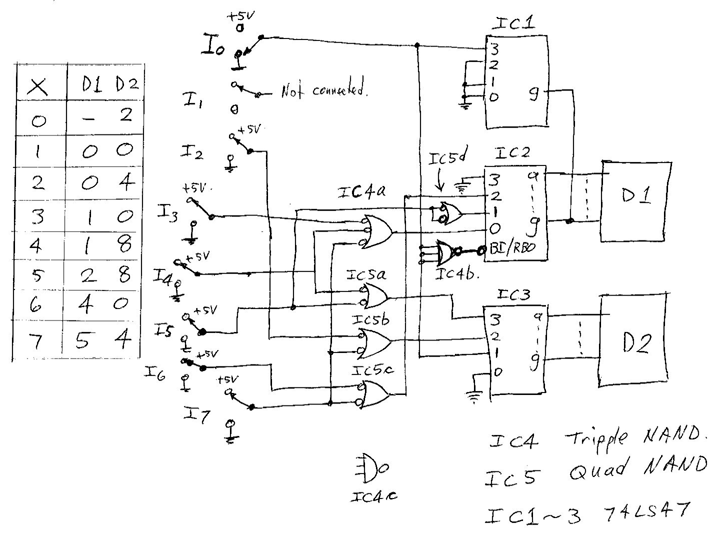 X D1 D2
0 - 2
1 0 0
2 0 4
3 1 0
4 1 8
5 2 8
6 4 0
7 5 4
+5V
I0
I1
Not connected.
+5V
I2
+5V.
I3
+5V
I4
+5V
I5
+5V
I6
+5V
I7
IC4a
IC5a
IC5b
IC5c
IC5d
IC4b.
IC4c
IC1
3
2
1
0
g
IC2
3
2
1
0
BI/RBO
a
g
D1
IC3
3
2
1
0
a
g
D2
IC4 Tripple NAND.
IC5 Quad NAND
IC1~3 74LS47